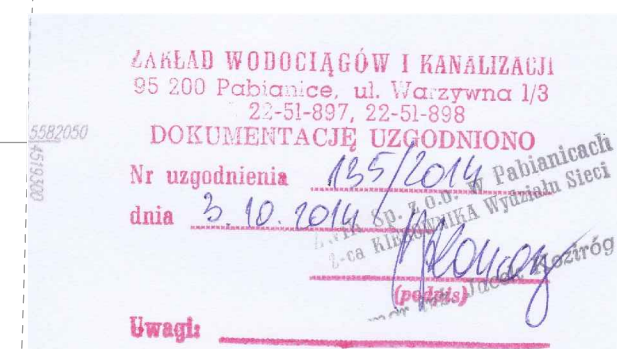 ZAKŁAD WODOCIĄGÓW I KANALIZACJI
95 200 Pabianice, ul. Warzywna 1/3
22-51-897, 22-51-898
DOKUMENTACJĘ UZGODNIONO
Nr uzgodnienia 135/2014
dnia 3.10.2014
ZWiK Sp. z o.o. w Pabianicach
Z-ca KIEROWNIKA Wydziału Sieci
(podpis)
mgr inż. Jacek Koziróg
Uwagi:
5582050
4519300